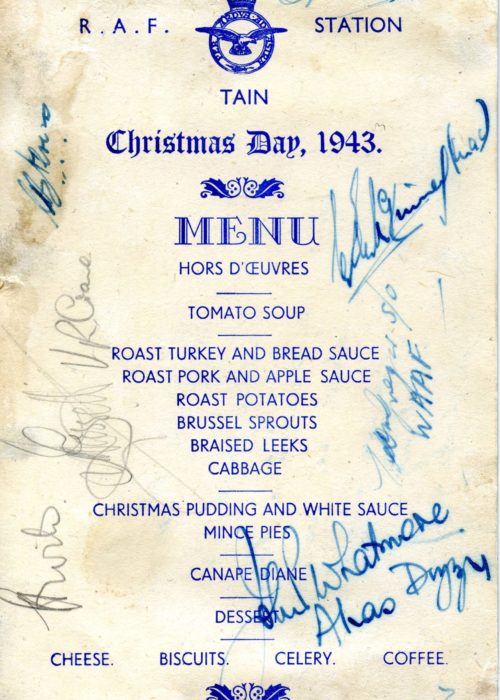 R.A.F. STATION
TAIN
Christmas Day, 1943.
MENU
HORS D'ŒUVRES
TOMATO SOUP
ROAST TURKEY AND BREAD SAUCE
ROAST PORK AND APPLE SAUCE
ROAST POTATOES
BRUSSEL SPROUTS
BRAISED LEEKS
CABBAGE
CHRISTMAS PUDDING AND WHITE SAUCE
MINCE PIES
CANAPE DIANE
DESSERT
CHEESE. BISCUITS. CELERY. COFFEE.
WAAF
Whatmore